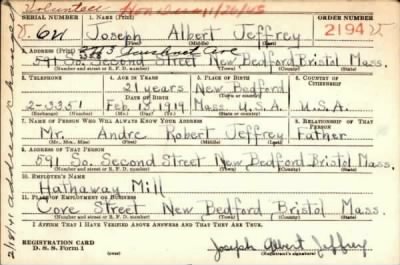 Volunteer Hon Disc 11/26/45
SERIAL NUMBER 1. NAME (Print) ORDER NUMBER
V. 64 Joseph Albert Jeffrey 2194 V
2. ADDRESS (Print)
591 So. Second Street New Bedford Bristol Mass.
(Number and street or R. F. D. number) (Town) (County) (State)
3. TELEPHONE 4. AGE IN YEARS 5. PLACE OF BIRTH 6. COUNTRY OF CITIZENSHIP
21 years New Bedford
DATE OF BIRTH
2-3351 Feb. 13 1919 Mass. U.S.A. U.S.A.
(Exchange) (Number) (Mo.) (Day) (Yr.) (State or country)
7. NAME OF PERSON WHO WILL ALWAYS KNOW YOUR ADDRESS 8. RELATIONSHIP OF THAT PERSON
Mr. Andre Robert Jeffrey Father
(Mr., Mrs., Miss) (First) (Middle) (Last)
9. ADDRESS OF THAT PERSON
591 So. Second Street New Bedford Bristol Mass.
(Number and street or R. F. D. number) (Town) (County) (State)
10. EMPLOYER'S NAME
Hathaway Mill
11. PLACE OF EMPLOYMENT OR BUSINESS
Cove Street New Bedford Bristol Mass.
(Number and street or R. F. D. number) (Town) (County) (State)
I AFFIRM THAT I HAVE VERIFIED ABOVE ANSWERS AND THAT THEY ARE TRUE.
REGISTRATION CARD
D. S. S. Form 1
Joseph Albert Jeffrey
(Registrant's signature)
2/18/41 address change